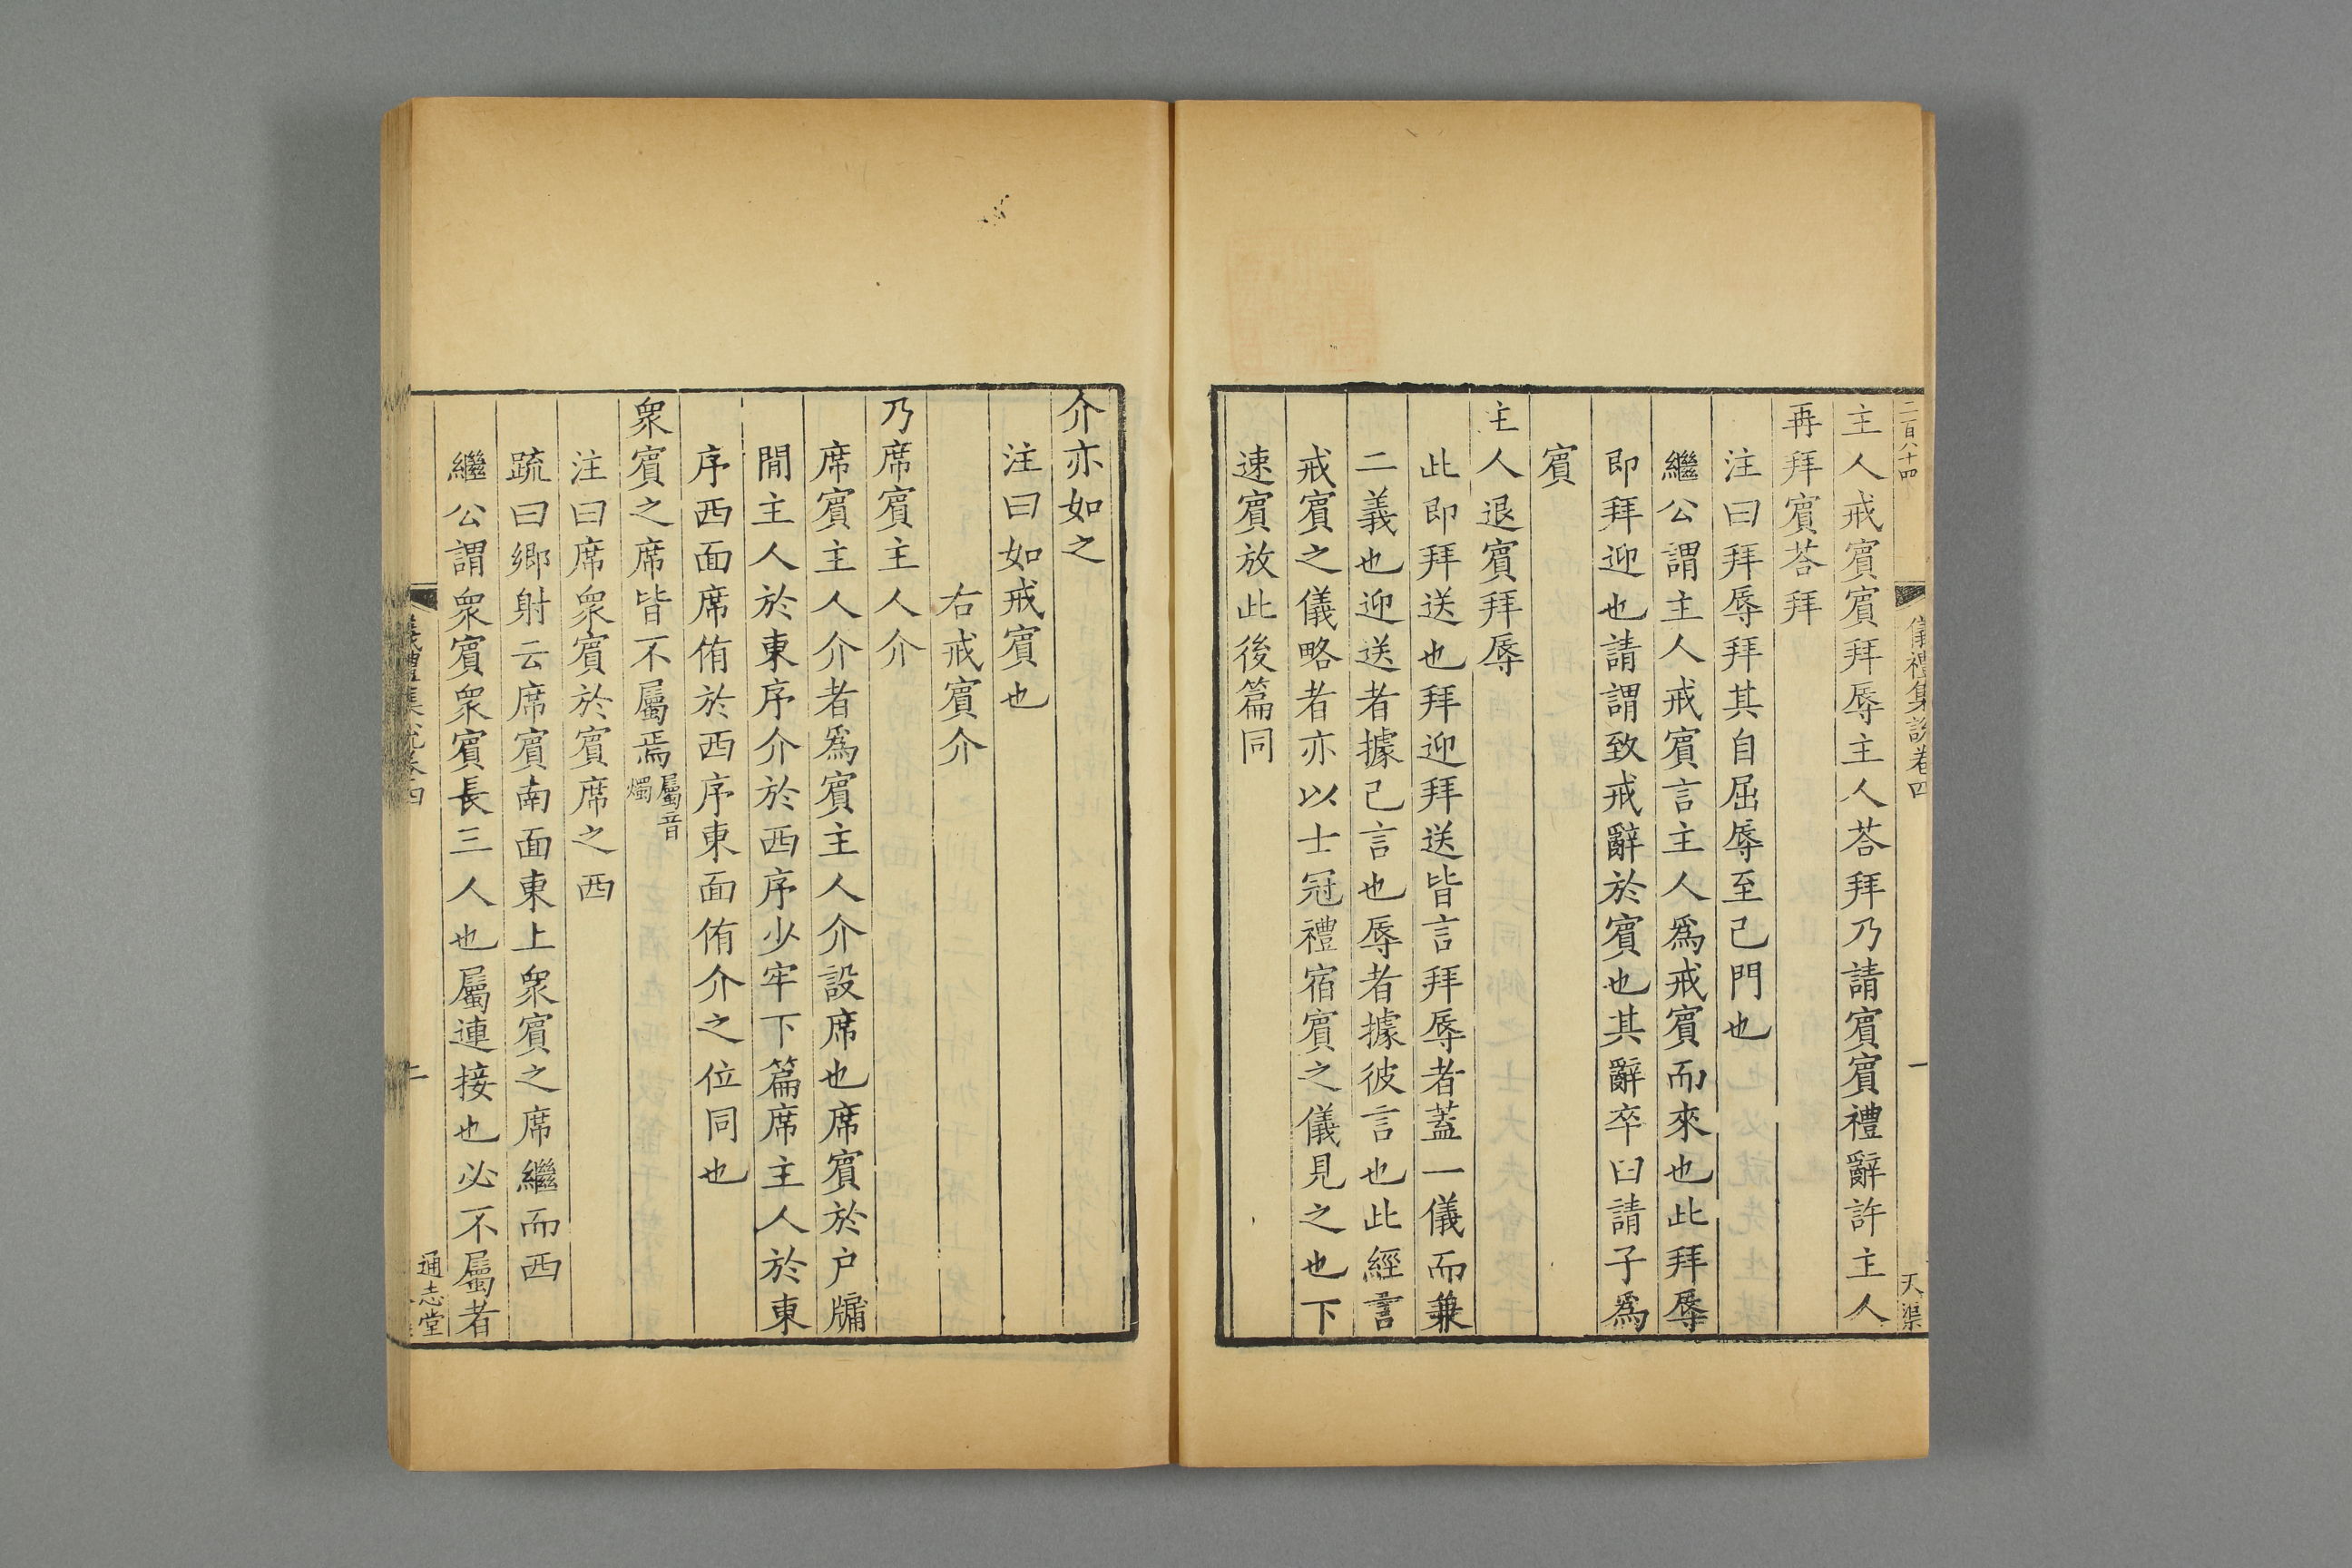 二百八十四
儀禮集說卷四
一
天渠
主人戒賓賓拜辱主人荅拜乃請賓賓禮辭許主人
再拜賓荅拜
注曰拜辱拜其自屈辱至己門也
繼公謂主人戒賓言主人爲戒賓而來也此拜辱
即拜迎也請謂致戒辭於賓也其辭卒曰請子爲
賓
主人退賓拜辱
此即拜送也拜迎拜送皆言拜辱者蓋一儀而兼
二義也迎送者據己言也辱者據彼言也此經言
戒賓之儀略者亦以士冠禮宿賓之儀見之也下
速賓放此後篇同
介亦如之
注曰如戒賓也
右戒賓介
乃席賓主人介
席賓主人介者爲賓主人介設席也席賓於户牖
閒主人於東序介於西序少牢下篇席主人於東
序西面席侑於西序東面侑介之位同也
衆賓之席皆不屬焉屬音
燭
注曰席衆賓於賓席之西
疏曰鄉射云席賓南面東上衆賓之席繼而西
繼公謂衆賓衆賓長三人也屬連接也必不屬者
儀禮集說卷四
二
通志堂